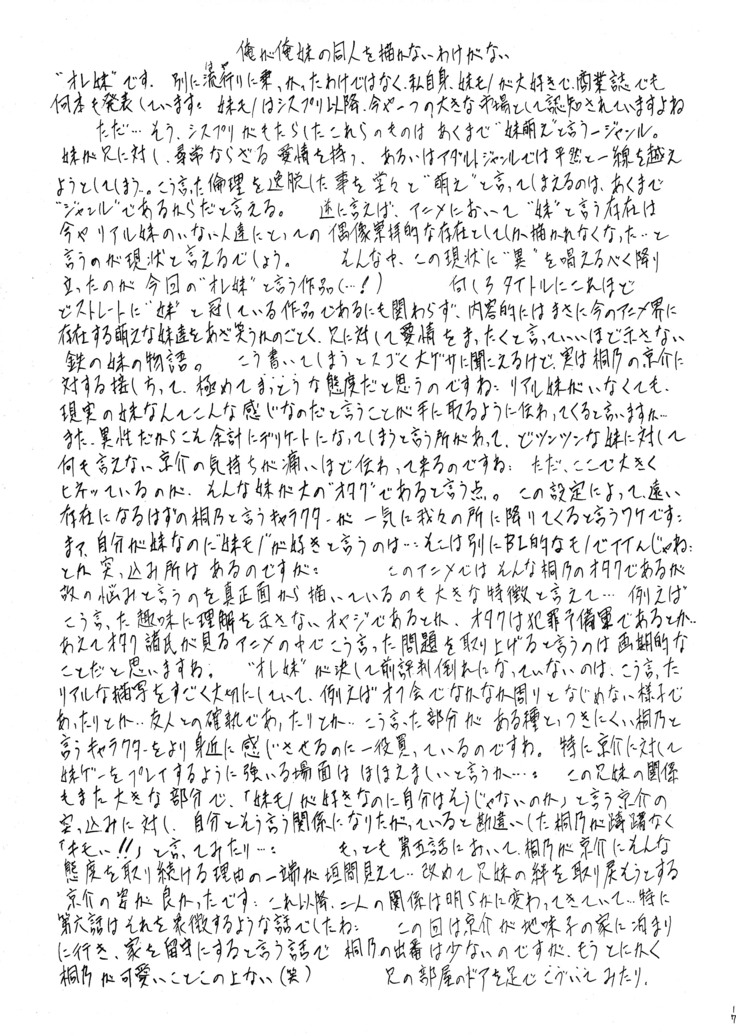 俺が俺妹の同人を描かないわけがない
"オレ妹"です. 別に流行りに乗っかったわけではなく、私自身、妹モノが大好きで、商業誌でも
何本も発表しています: 妹モノはシスプリ以降、今や一つの大きな市場として認知されていますよね
ただ…もう、シスプリがもたらしたこれらのものは あくまで"妹萌え"と言う一ジャンル。
妹が兄に対し、尋常ならざる愛情を持つ、 あるいはアダルトジャンルでは平然と一線を越え
ようとしてしまう。こう言った倫理を逸脱した事を堂々と"萌え"と言ってしまえるのは、あくまで
"ジャンル"であるからだと言える。 逆に言えば、アニメにおいて"妹"と言う存在は
今やリアル妹のいない人達にとっての偶像崇拝的な存在としてしか描かれなくなった…と
言うのが現状と言えるでしょう。 そんな中、この現状に"異"を唱えるべく降り
立ったのが 今回の"オレ妹"と言う作品(…!) 何しろタイトルにこれほど
どストレートに"妹"と冠している作品であるにも関わらず、内容的にはまさに今のアニメ界に
存在する萌えな妹達をあざ笑うかのごとく、兄に対して愛情をまったくと言っていいほど示さない
鉄の妹の物語。 こう書いてしまうとスゴく大ゲサに聞こえるけど、実は桐乃の京介に
対する接し方って、極めてまっとうな態度だと思うのですね: リアル妹がいなくても、
現実の妹なんてこんな感じなのだと言うことが手に取るように伝わってくると言いますか…
また、異性だからこそ余計にデリケートになってしまうと言う所があって、どツンツンな妹に対して
何も言えない京介の気持ちが痛いほど伝わって来るのですね: ただ、ここで大きく
ヒネっているのが、そんな妹が大の"オタク"であると言う点。 この設定によって、遠い
存在になるはずの桐乃と言うキャラクターが 一気に我々の所に降りてくると言うワケです:
まァ、自分が妹なのに"妹モノ"が好きと言うのは…: そこは別にBL的なモノでイイんじゃね:
とか 突っ込み所は あるのですが: このアニメでは そんな桐乃のオタクであるが
故の悩みと言うのを真正面から描いているのも大きな特徴と言えて… 例えば
こう言った趣味に理解を示さないオヤジであるとか、オタクは犯罪予備軍であるとか…
あえてオタク諸氏が見るアニメの中でこう言った問題を取り上げると言うのは画期的な
ことだと思いますね。 "オレ妹"が決して前評判倒れになっていないのは、こう言った
リアルな描写をすごく大切にしていて、例えばオフ会でなかなか周りとなじめない様子で
あったりとか…友人との確執であったりとか…こう言った部分が ある種とっつきにくい桐乃と
言うキャラクターをより身近に感じさせるのに一役買っているのですね。 特に京介に対して
妹ゲーをプレイするように強いる場面は ほほえましいと言うか…: この兄妹の関係
もまた大きな部分で、「妹モノが好きなのに自分はそうじゃないのか」と言う京介の
突っ込みに対し、自分とそう言う関係になりたがっていると勘違いした桐乃が躊躇なく
「キモい!!」と言ってみたり…: もっとも第五話において、桐乃が京介にそんな
態度を取り続ける理由の一端が垣間見えて…改めて兄妹の絆を取り戻そうとする
京介の姿が良かったです: これ以降、二人の関係は明らかに変わってきていて…特に
第六話はそれを象徴するような話でしたね: この回は京介が地味子の家に泊まり
に行き、家を留守にすると言う話で 桐乃の出番は少ないのですが、もうとにかく
桐乃が可愛いことこの上ない(笑) 兄の部屋のドアを足でこづいてみたり、
17